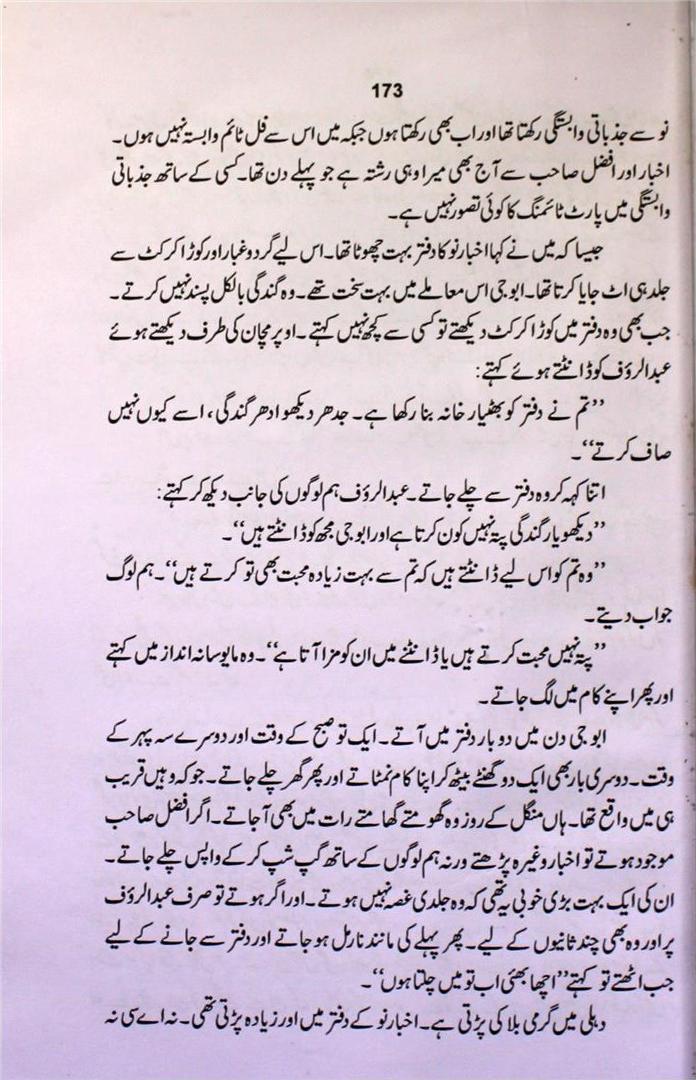 173
نو سے جذباتی وابستگی رکھتا تھا اور اب بھی رکھتا ہوں جبکہ میں اس سے فل ٹائم وابستہ نہیں ہوں۔
اخبار اور افضل صاحب سے آج بھی میرا وہی رشتہ ہے جو پہلے دن تھا۔ کسی کے ساتھ جذباتی
وابستگی میں پارٹ ٹائمنگ کا کوئی تصور نہیں ہے۔
جیسا کہ میں نے کہا اخبار نو کا دفتر بہت چھوٹا تھا۔ اس لیے گرد و غبار اور کوڑا کرکٹ سے
جلد ہی اٹ جایا کرتا تھا۔ ابو جی اس معاملے میں بہت سخت تھے۔ وہ گندگی بالکل پسند نہیں کرتے۔
جب بھی وہ دفتر میں کوڑا کرکٹ دیکھتے تو کسی سے کچھ نہیں کہتے۔ اوپر مچان کی طرف دیکھتے ہوئے
عبدالرؤف کو ڈانٹتے ہوئے کہتے:
’’تم نے دفتر کو بھٹیار خانہ بنا رکھا ہے۔ جدھر دیکھو ادھر گندگی، اسے کیوں نہیں
صاف کرتے‘‘۔
اتنا کہہ کر وہ دفتر سے چلے جاتے۔ عبدالرؤف ہم لوگوں کی جانب دیکھ کر کہتے:
’’دیکھو یار گندگی پتہ نہیں کون کرتا ہے اور ابو جی مجھ کو ڈانٹتے ہیں‘‘۔
’’وہ تم کو اس لیے ڈانٹتے ہیں کہ تم سے بہت زیادہ محبت بھی تو کرتے ہیں‘‘۔ ہم لوگ
جواب دیتے۔
’’پتہ نہیں محبت کرتے ہیں یا ڈانٹنے میں ان کو مزا آتا ہے‘‘۔ وہ مایوسانہ انداز میں کہتے
اور پھر اپنے کام میں لگ جاتے۔
ابو جی دن میں دو بار دفتر میں آتے۔ ایک تو صبح کے وقت اور دوسرے سہ پہر کے
وقت۔ دوسری بار بھی ایک دو گھنٹے بیٹھ کر اپنا کام نمٹاتے اور پھر گھر چلے جاتے۔ جو کہ وہیں قریب
ہی میں واقع تھا۔ ہاں منگل کے روز وہ گھومتے گھامتے رات میں بھی آ جاتے۔ اگر افضل صاحب
موجود ہوتے تو اخبار وغیرہ پڑھتے ورنہ ہم لوگوں کے ساتھ گپ شپ کر کے واپس چلے جاتے۔
ان کی ایک بہت بڑی خوبی یہ تھی کہ وہ جلدی غصہ نہیں ہوتے۔ اور اگر ہوتے تو صرف عبدالرؤف
پر اور وہ بھی چند ثانیوں کے لیے۔ پھر پہلے کی مانند نارمل ہو جاتے اور دفتر سے جانے کے لیے
جب اٹھتے تو کہتے ’’اچھا بھئی اب تو میں چلتا ہوں‘‘۔
دہلی میں گرمی بلا کی پڑتی ہے۔ اخبار نو کے دفتر میں اور زیادہ پڑتی تھی۔ نہ اے سی نہ